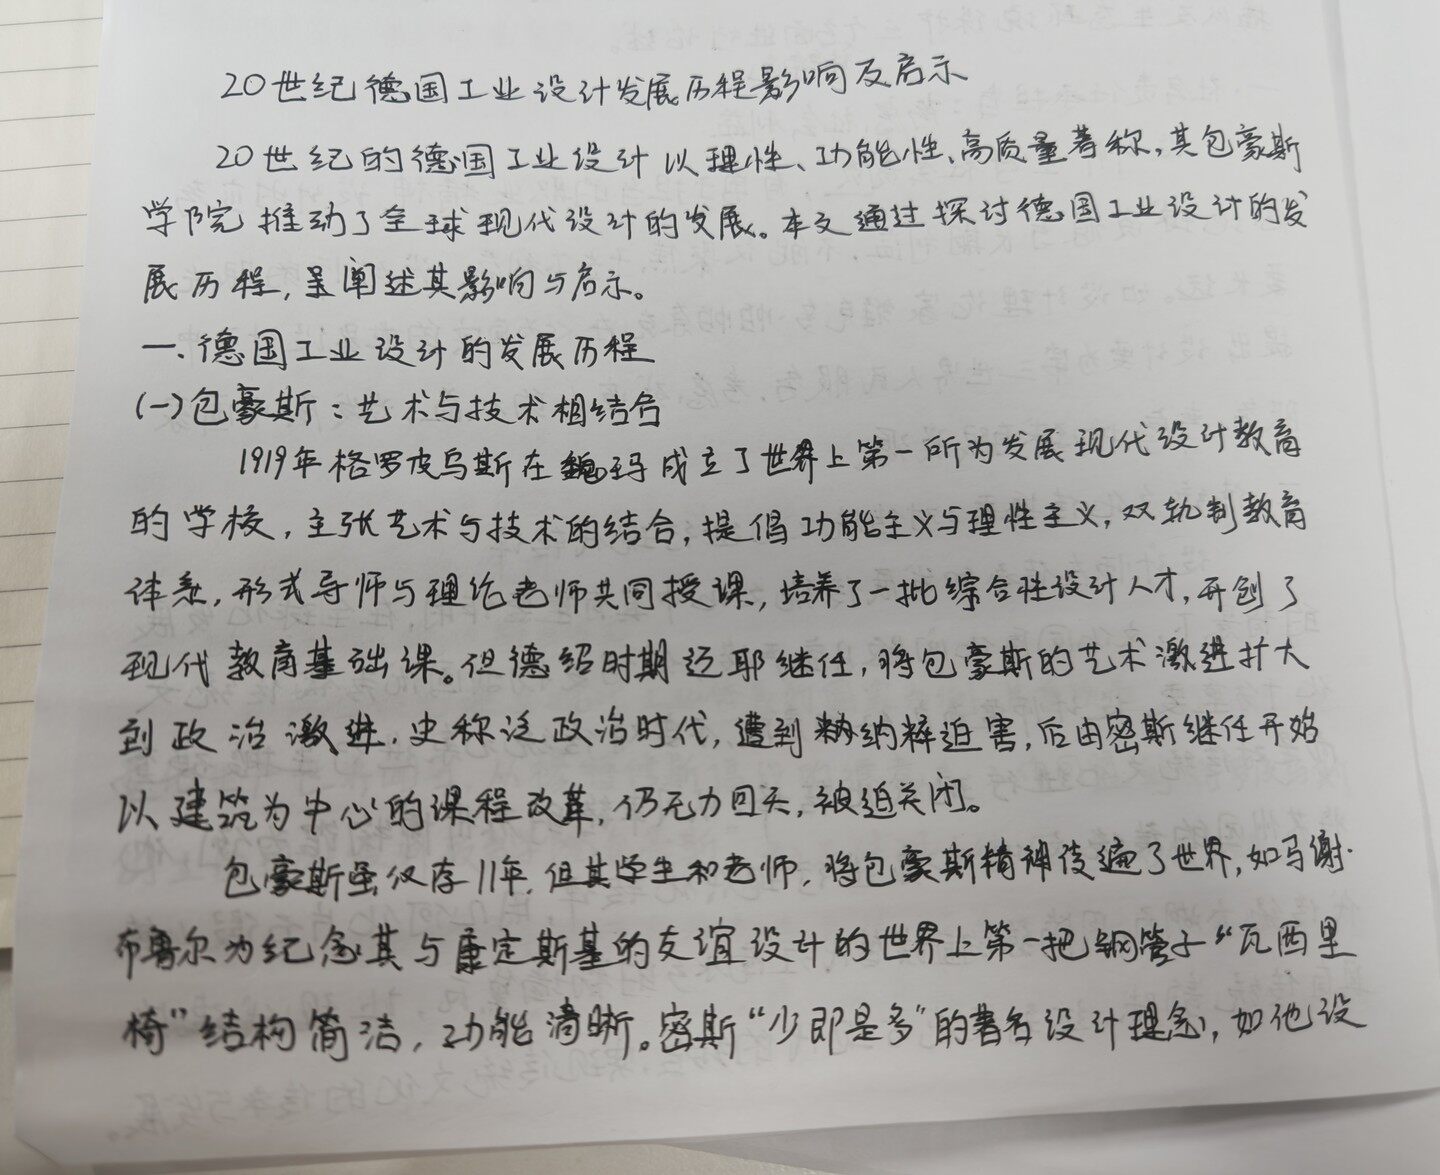 20世纪德国工业设计发展历程影响及启示
20世纪的德国工业设计以理性、功能性、高质量著称,其包豪斯
学院推动了全球现代设计的发展。本文通过探讨德国工业设计的发
展历程,呈阐述其影响与启示。
一.德国工业设计的发展历程
(一)包豪斯:艺术与技术相结合
1919年格罗皮乌斯在魏玛成立了世界上第一所为发展现代设计教育
的学校,主张艺术与技术的结合,提倡功能主义与理性主义,双轨制教育
体系,形式导师与理论老师共同授课,培养了一批综合性设计人才,开创了
现代教育基础课。但德绍时期迈耶继任,将包豪斯的艺术激进扩大
到政治激进.史称泛政治时代,遭到纳粹迫害,后由密斯继任开始
以建筑为中心的课程改革,仍无力回天,被迫关闭。
包豪斯虽仅存11年.但其学生和老师,将包豪斯精神传遍了世界,如马谢·
布鲁尔为纪念其与康定斯基的友谊设计的世界上第一把钢管子“瓦西里
椅”结构简洁,功能清晰。密斯“少即是多”的著名设计理念,如他设